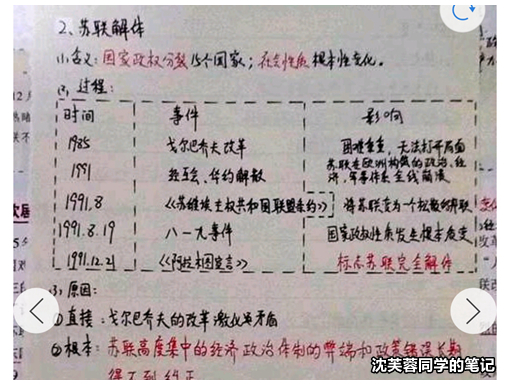 2、苏联解体
(1)含义：国家政权分裂15个国家；社会性质根本性变化。
(2)过程：
时间 事件 影响
1985 戈尔巴乔夫改革 困难重重，无法打开局面
1991 经互会、华约解散 苏联在欧洲构筑的政治、经济、军事体系全线崩溃
1991.8 《苏维埃主权共和国联盟条约》 将苏联变为一个松散的联联
1991.8.19 八一九事件 国家政权性质发生根本质变
1991.12.21 《阿拉木图宣言》 标志苏联完全解体
(3)原因：
①直接：戈尔巴乔夫的改革激化矛盾
②根本：苏联高度集中的经济政治体制的弊端和政策错误长期
得不到纠正
沈芙蓉同学的笔记